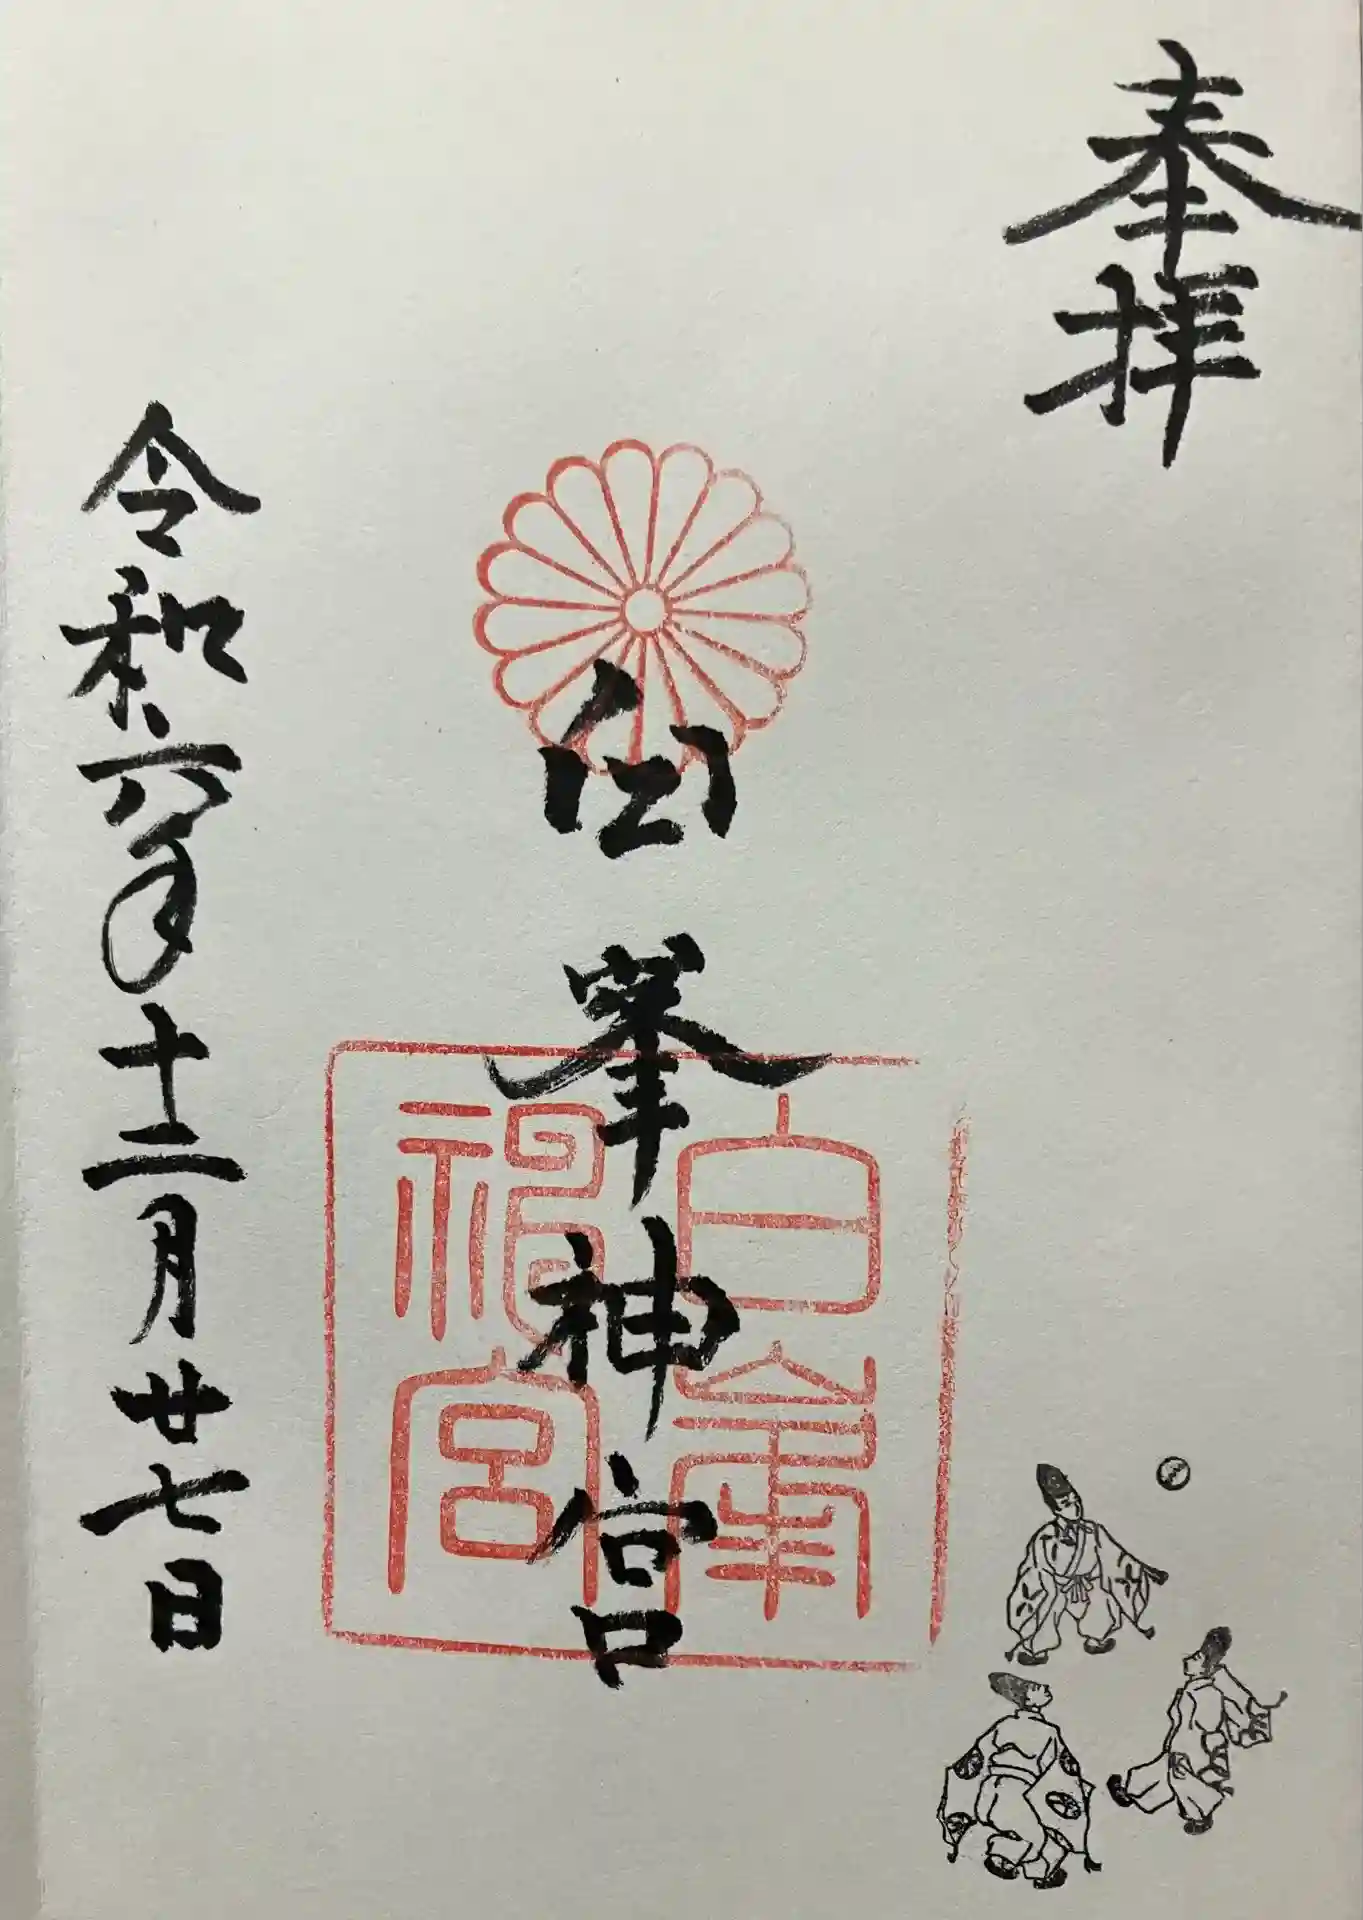 奉拝
白峯神宮
白峯神宮
令和六年十二月廿七日